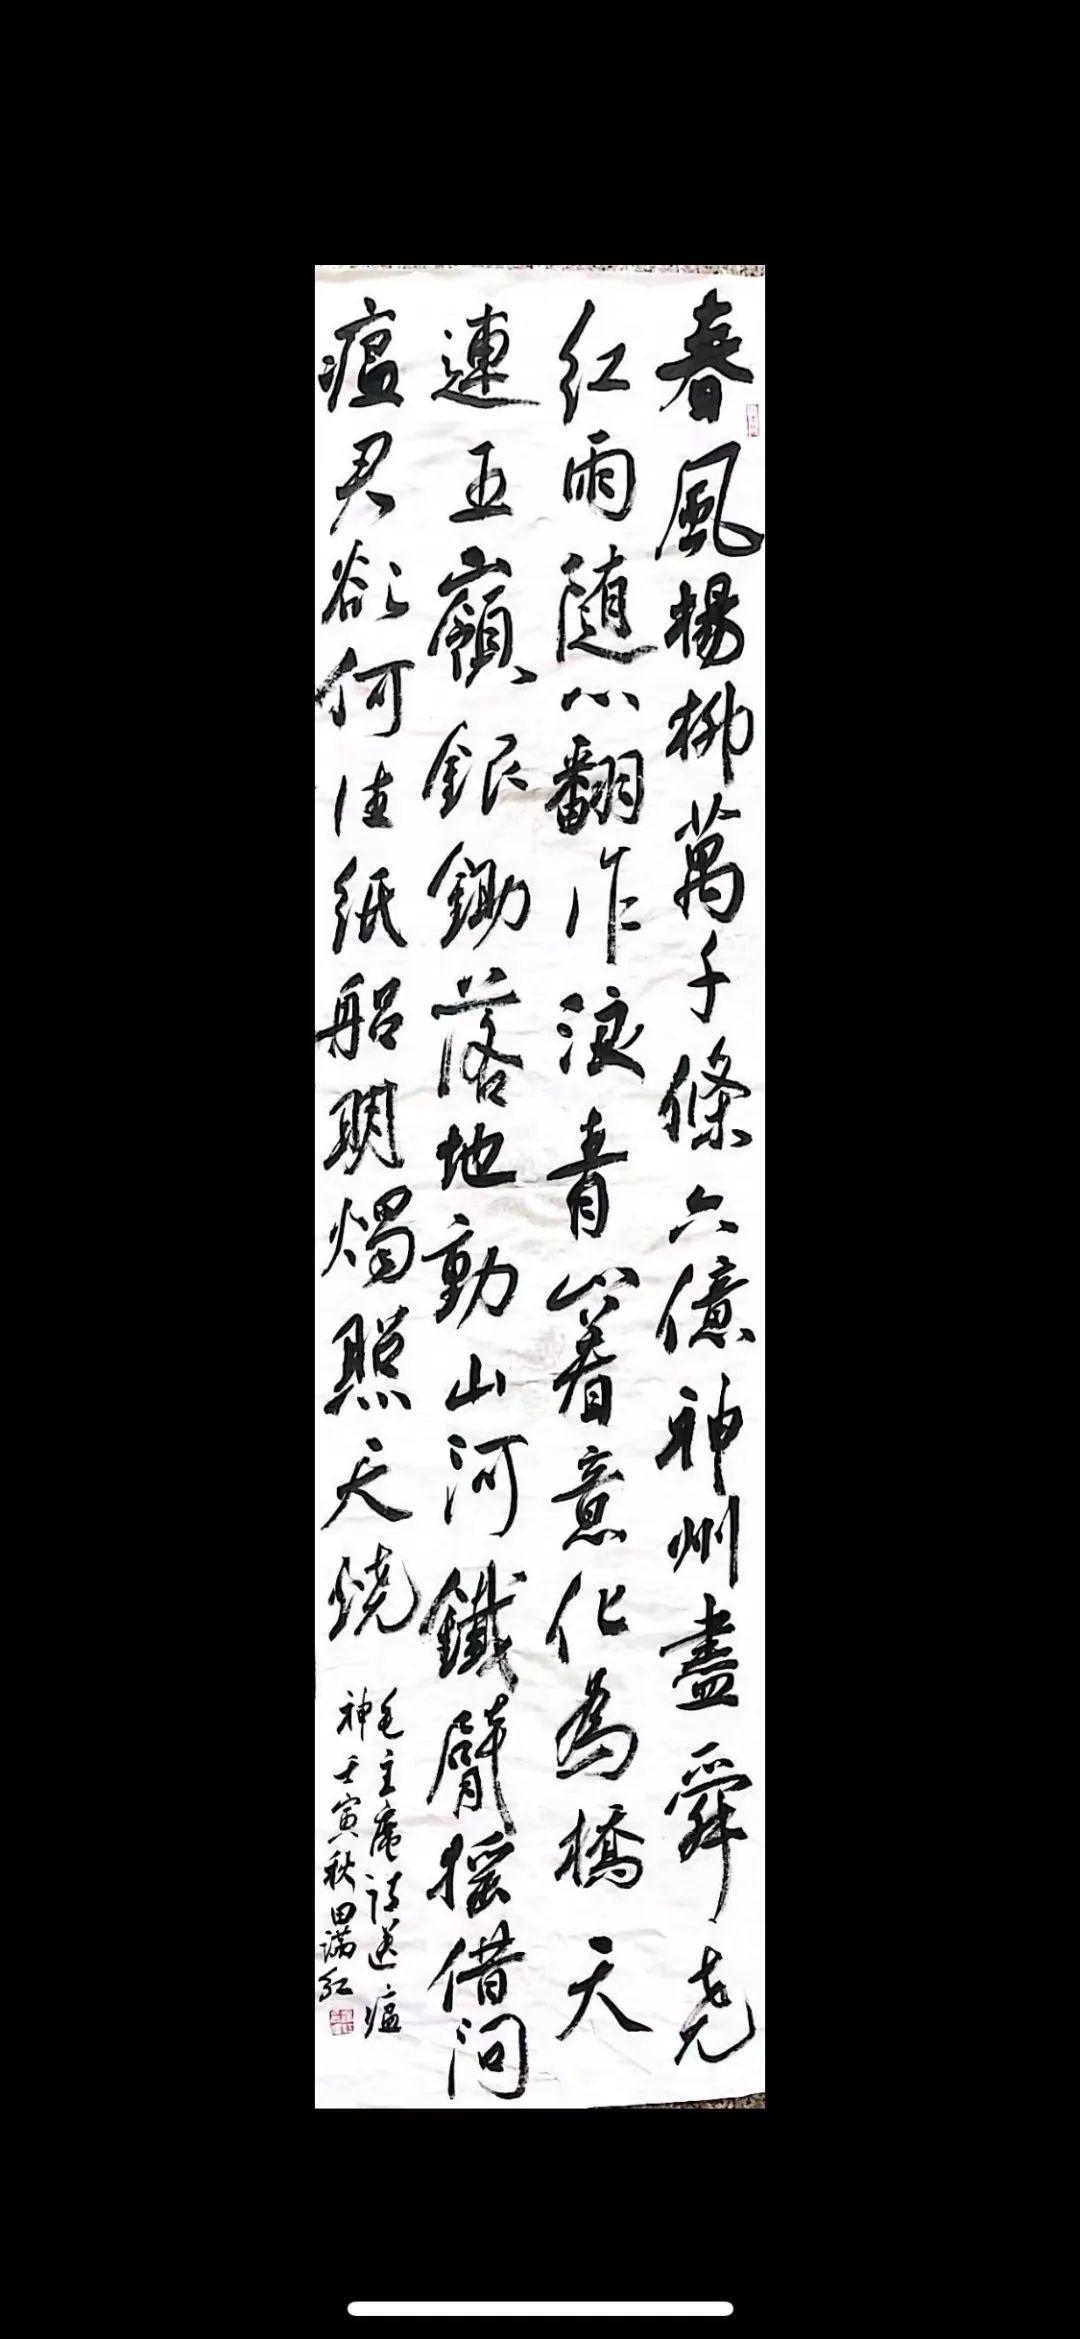 春風楊柳萬千條六億神州盡舜堯
紅雨随心翻作浪青山著意化為橋天
連五嶺銀鋤落地動山河鐵臂摇借問
瘟君欲何往紙船明燭照天燒
毛主席詩送瘟
神壬寅秋田满红